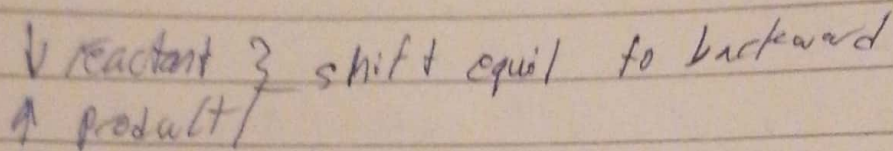 ↓ reactant } shift equil to backward
↑ product